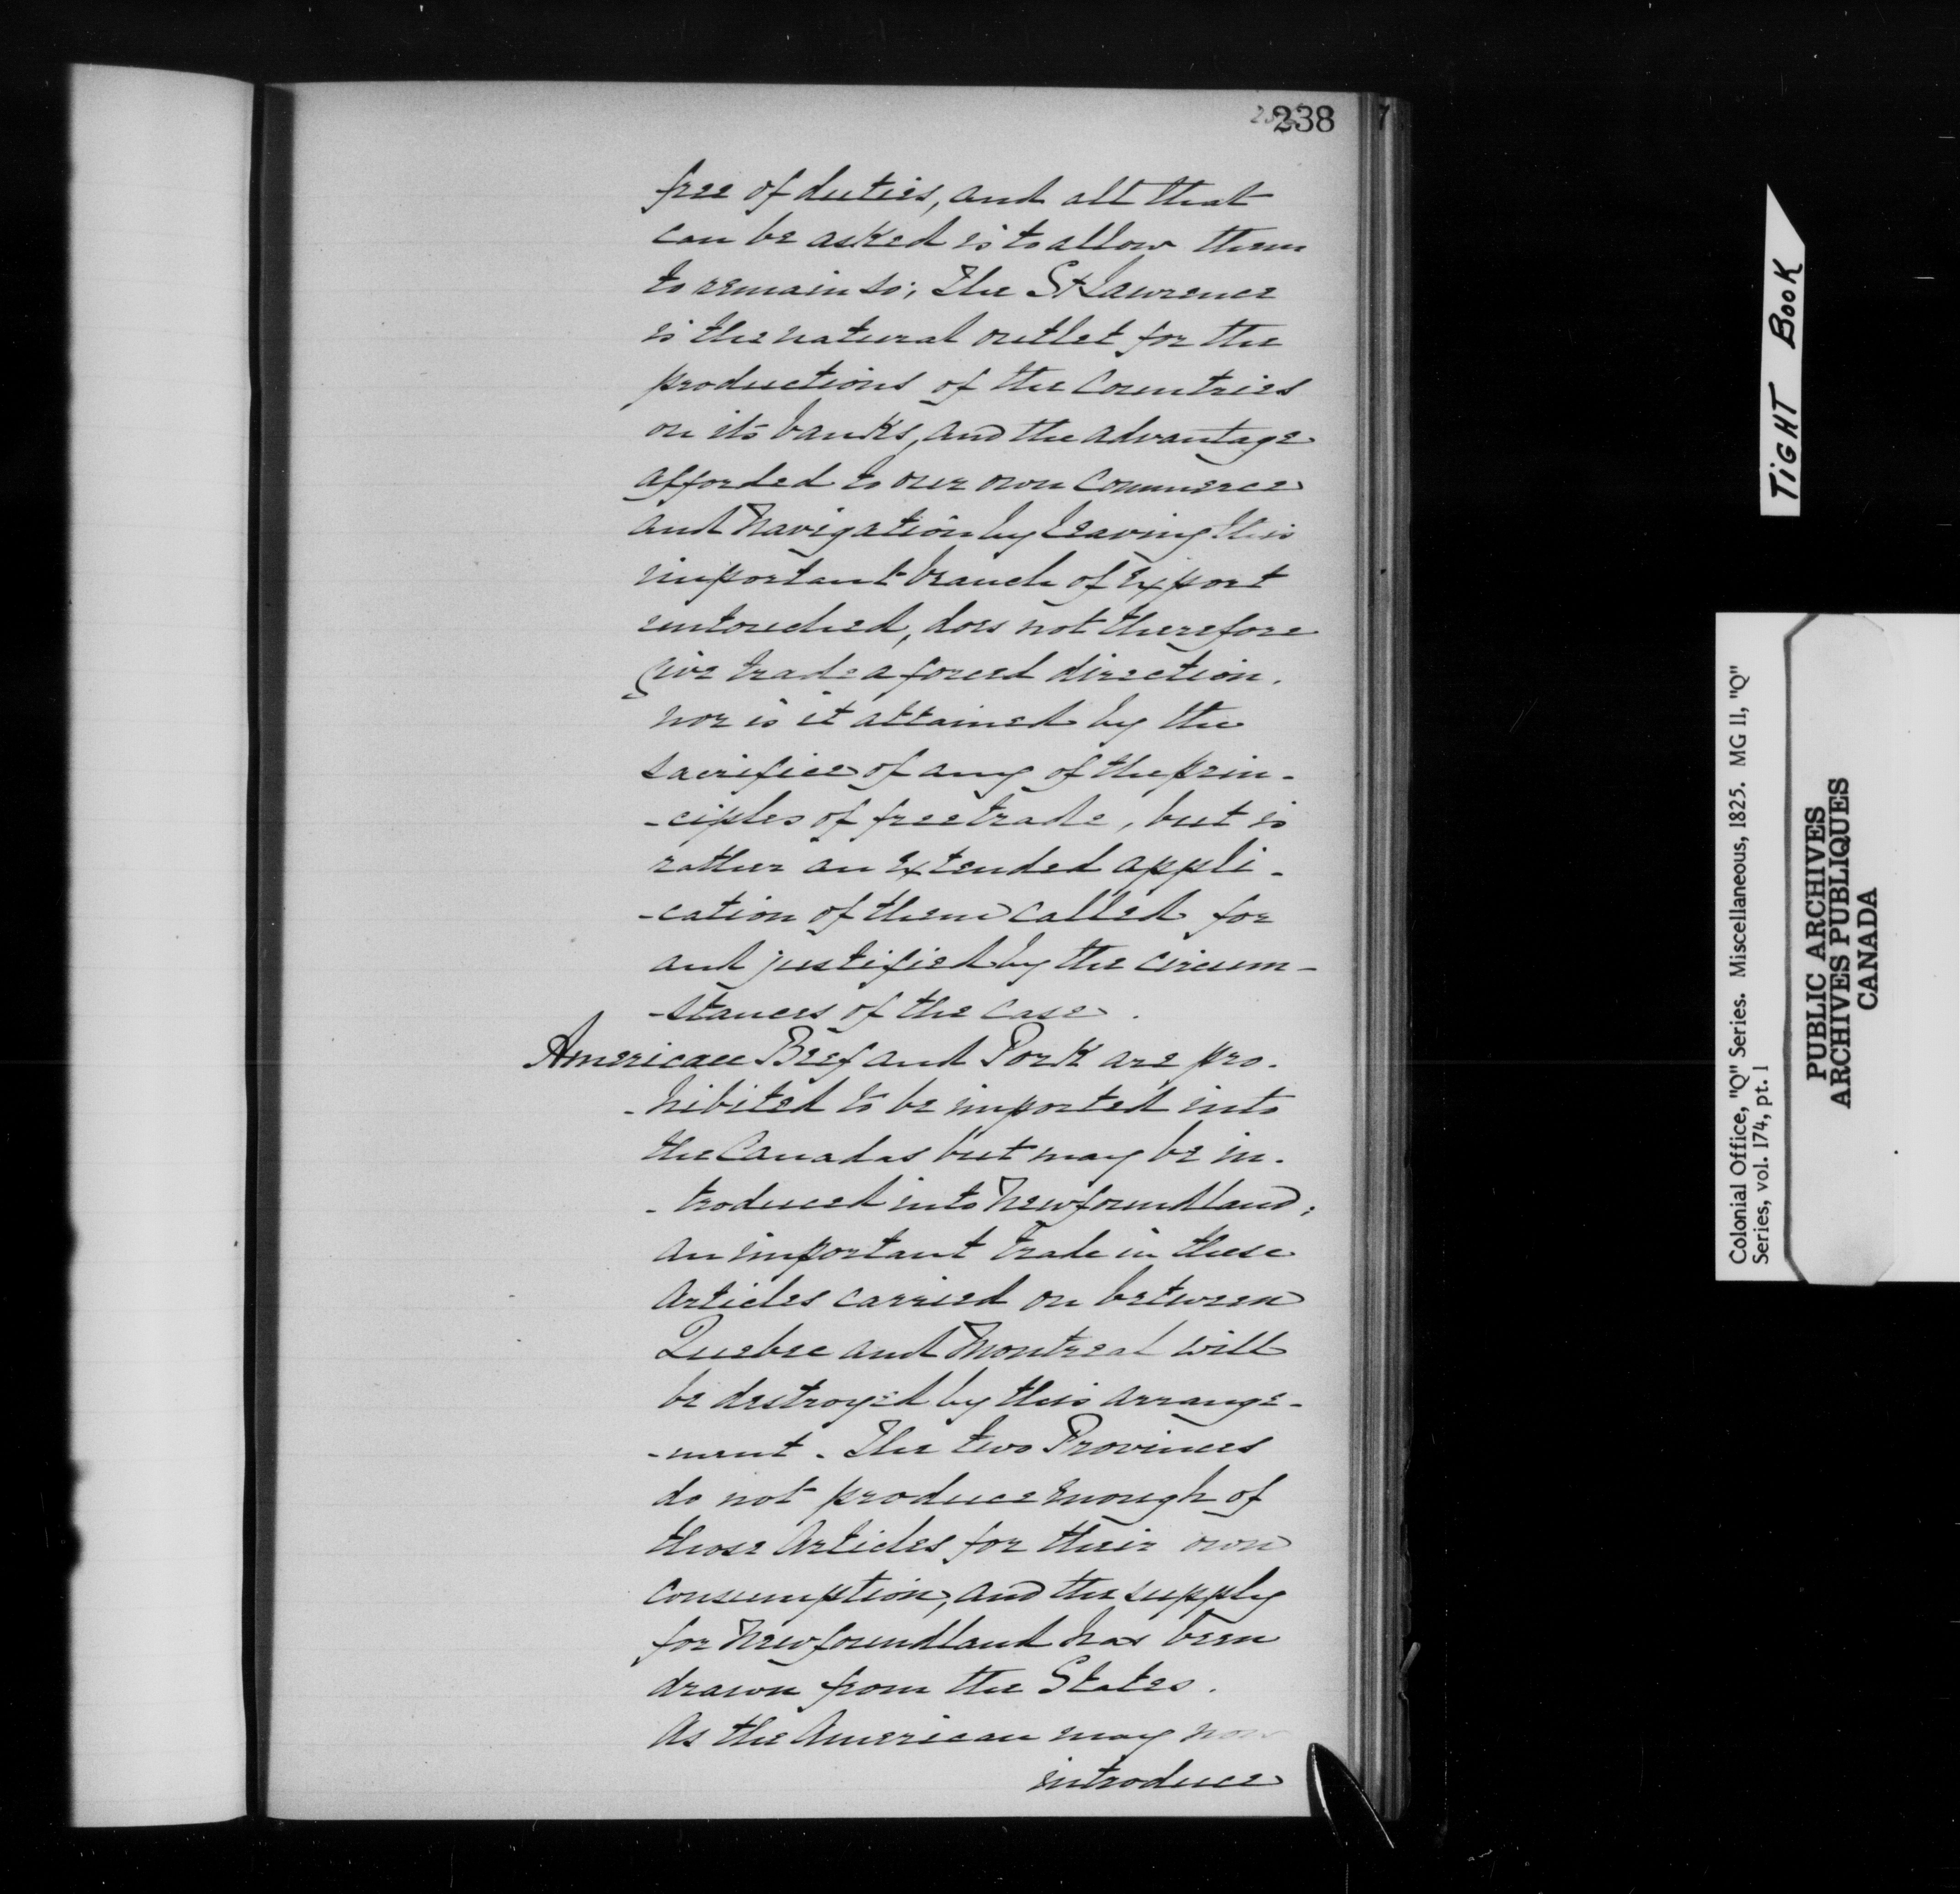 238
free of duties, and all that
can be asked is to allow them
to remain so; The St Lawrence
is the natural outlet for the
productions of the Countries
on its banks, and the advantage
afforded to our own Commerce
and Navigation by leaving this
important branch of Export
untouched, does not therefore
give trade a forced direction.
nor is it attained by the
sacrifice of any of the prin-
-ciples of free trade, but is
rather an extended appli-
-cation of them called for
and justified by the circum-
-stances of the case.
American Beef and Pork are pro-
-hibited to be imported into
the Canadas but may be in-
-troduced into Newfoundland;
an important Trade in these
Articles carried on between
Quebec and Montreal will
be destroyed by this arrange-
-ment. The two Provinces
do not produce enough of
those Articles for their own
consumption, and the supply
for Newfoundland has been
drawn from the States.
As the American may now
introduce
TIGHT BOOK
Colonial Office, "Q" Series. Miscellaneous, 1825. MG 11, "Q"
Series, vol. 174, pt. 1
PUBLIC ARCHIVES
ARCHIVES PUBLIQUES
CANADA